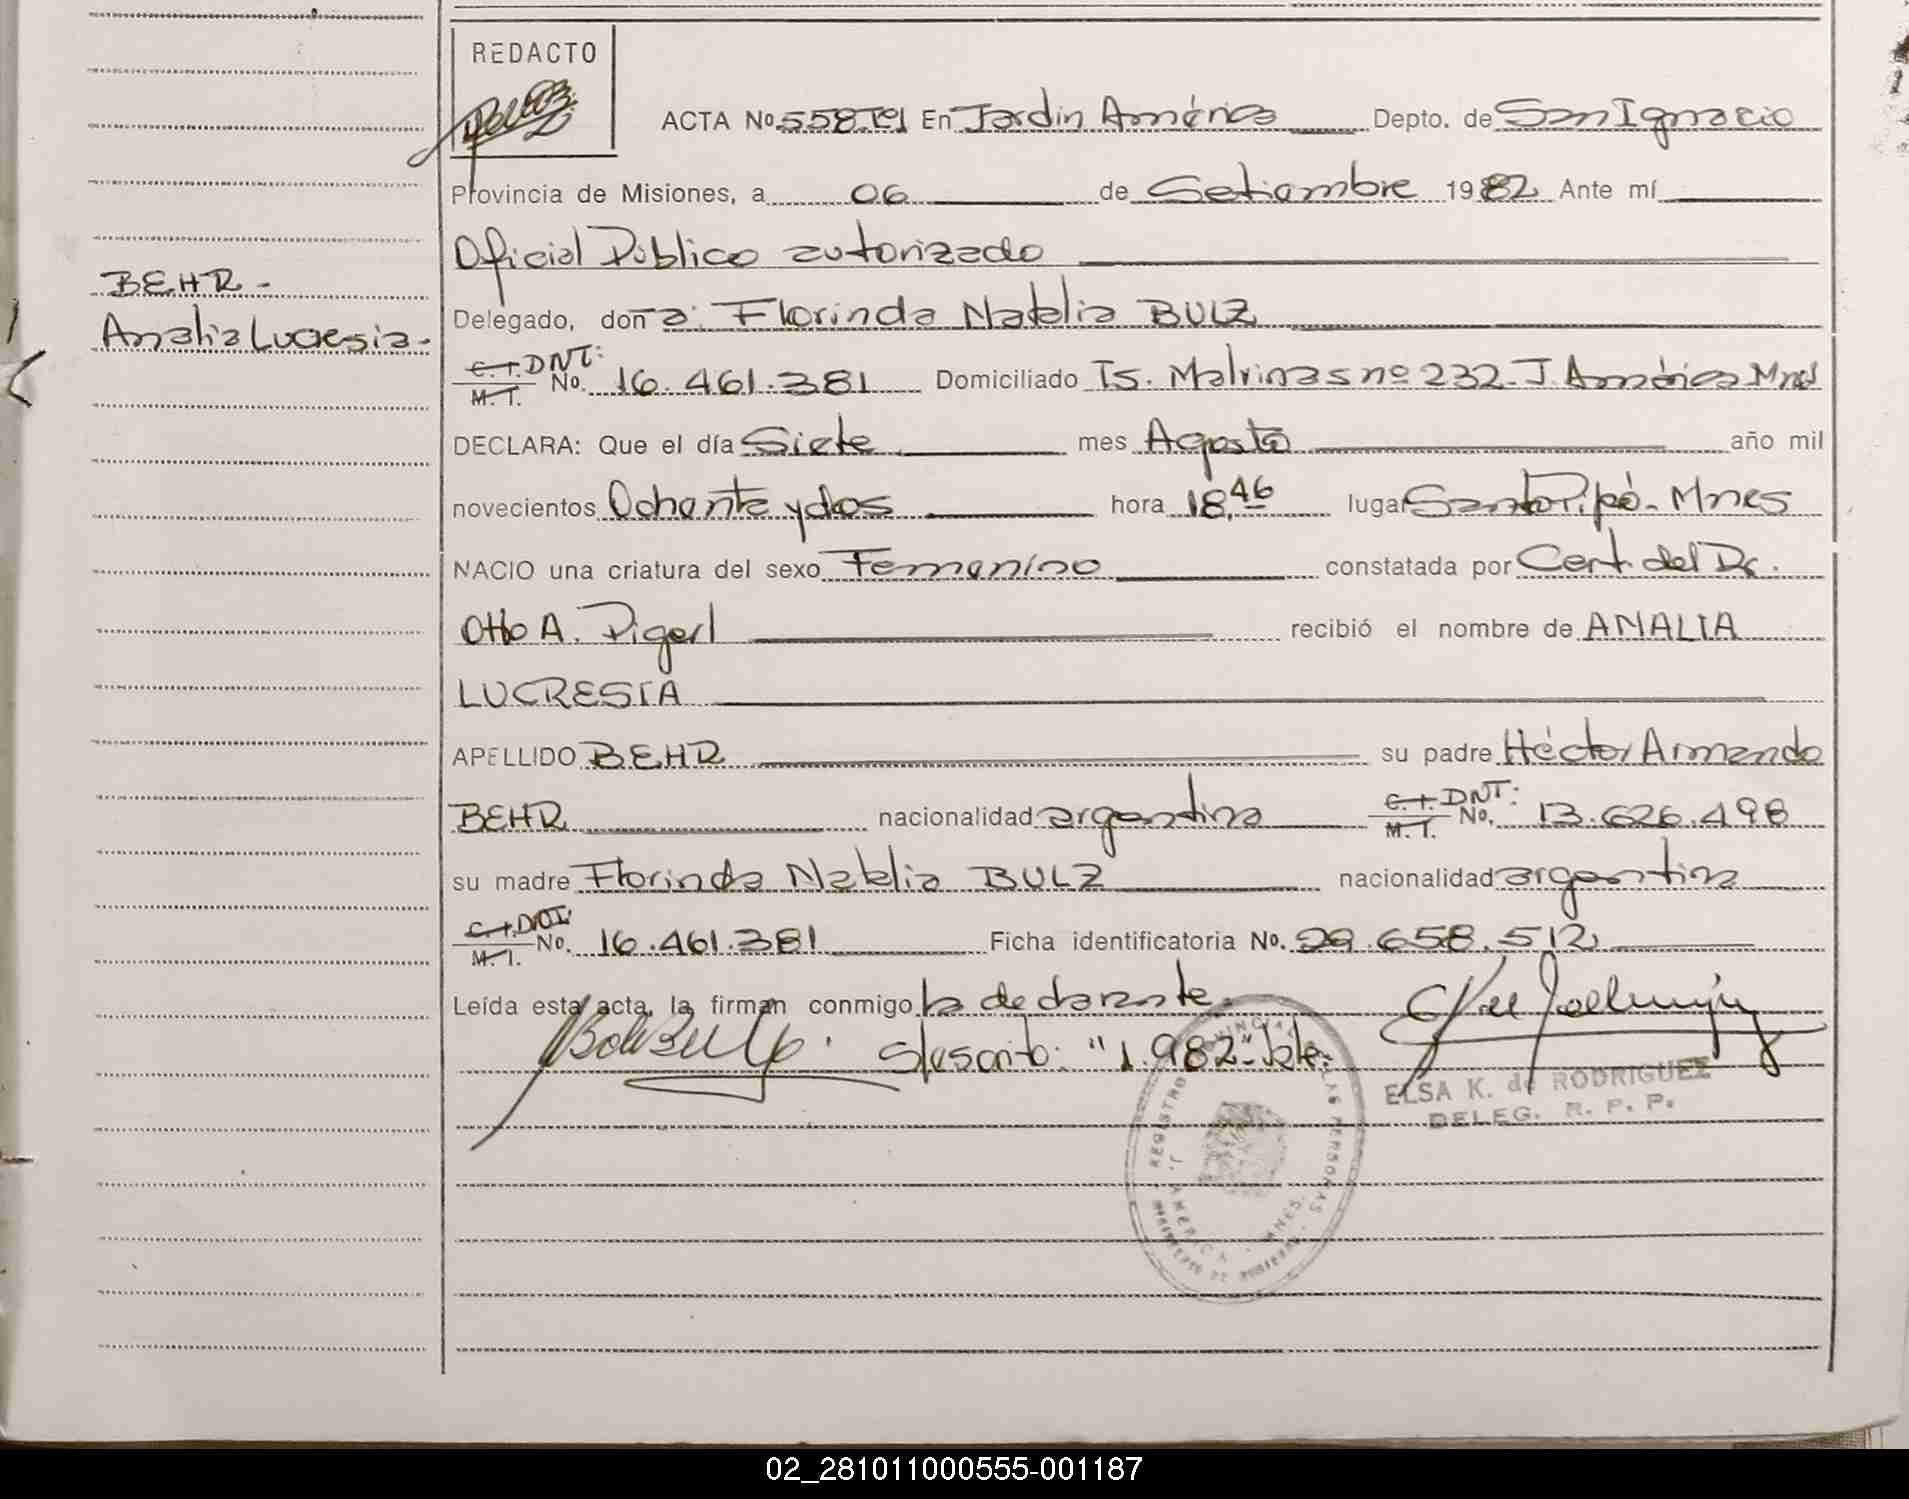 REDACTO
ACTA No. 558 TºI En Jardin América Depto. de San Ignacio
Provincia de Misiones, a 06 de Setiembre 1982 Ante mí
Oficial Público autorizado
BEHR -
Delegado, don a: Florinda Natalia BULZ
Analia Lucresia -
C. I. DNI:
M. I. No. 16.461.381 Domiciliado Is. Malvinas nº 232 - J. América Mnes
DECLARA: Que el día Siete mes Agosto año mil
novecientos Ochenta y dos hora 18,46 lugar Santo Pipó - Mnes
NACIO una criatura del sexo Femenino constatada por Cert. del Dr.
Otto A. Pigerl recibió el nombre de ANALIA
LUCRESIA
APELLIDO BEHR su padre Héctor Armando
BEHR nacionalidad argentina C. I. DNI: M. I. No. 13.626.498
su madre Florinda Natalia BULZ nacionalidad argentina
C. I. DNI
M. I. No. 16.461.381 Ficha identificatoria No. 29.658.512
Leída esta acta, la firman conmigo la declarante.
S/escrito: "1.982" Vale.
ELSA K. de RODRIGUEZ
DELEG. R. P. P.
REGISTRO PROVINCIAL DE LAS PERSONAS
J. AMERICA - MNES.
02_281011000555-001187